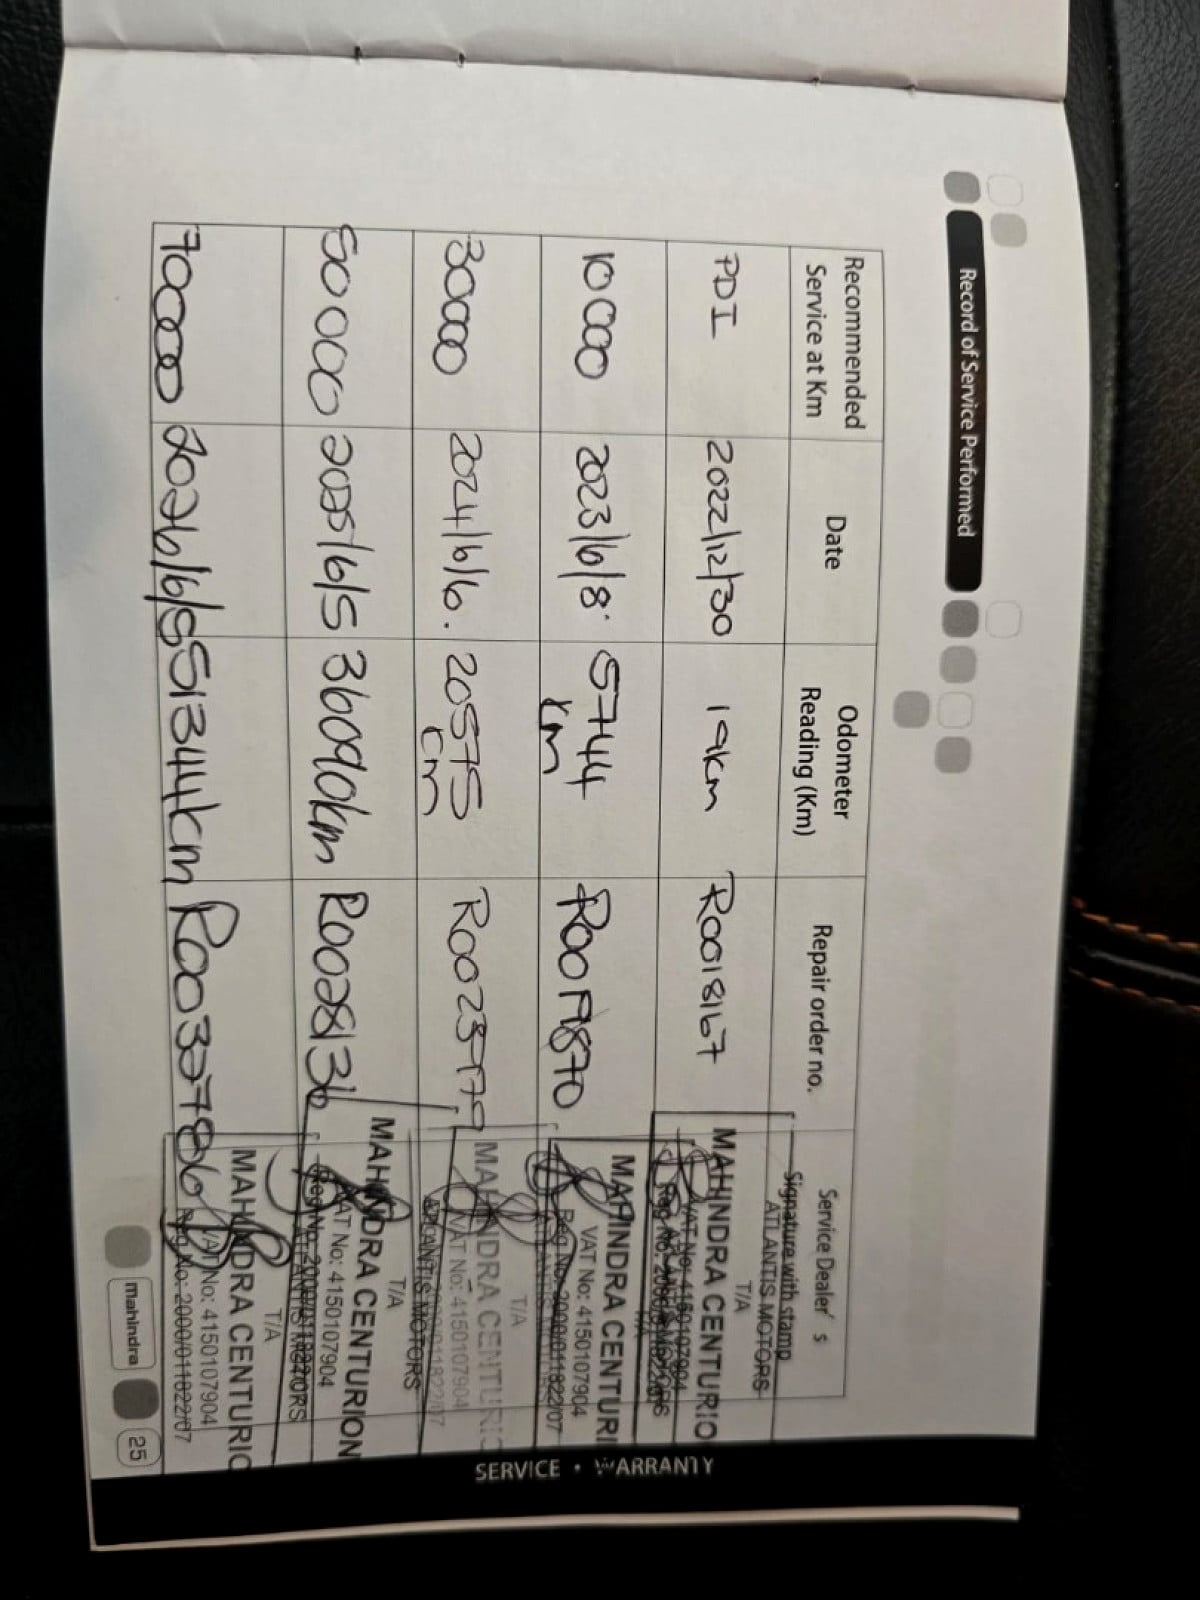 Record of Service Performed
Recommended Service at Km
Date
Odometer Reading (Km)
Repair order no.
Service Dealer's Signature with stamp
PDI 2022/12/30 19km R0018167
ATLANTIS MOTORS
T/A
MAHINDRA CENTURIO
VAT No: 4150107904
10 000 2023/6/8. 5744 km
MAHINDRA CENTURI
VAT No: 4150107904
Reg No: 2000/011822/07
30000 2024/6/6. 20575 km
T/A
MAHINDRA CENTURIO
VAT No: 4150107904
ATLANTIS MOTORS
50 000 2025/6/5 36090km R0028136
T/A
MAHINDRA CENTURION
VAT No: 4150107904
70000 2026/6/5 51344km R0032786
T/A
MAHINDRA CENTURIO
VAT No: 4150107904
Reg No: 2000/011822/07
Mahindra
25
SERVICE • WARRANTY